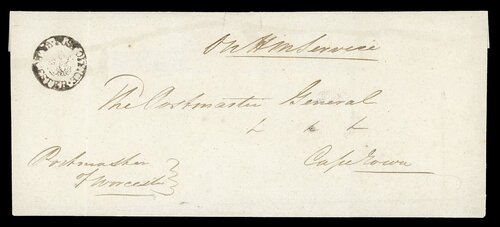 On H M Service
The Postmaster General
& & &
Cape Town
Postmaster
of Worcester